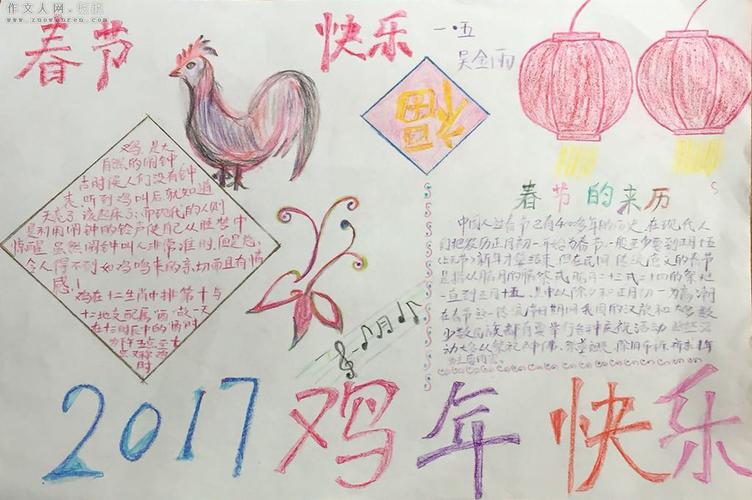 作文人网
www.zuowenren.com
春节
快乐
一·五
吴金雨
福
鸡是大
自然的闹钟
古时候人们没有钟
表,听到鸡叫后就知道
天亮了该起床了;而现代的人则
是利用闹钟的铃声使自己从睡梦中
惊醒。虽然闹钟叫人非常准时,但是总
令人得不到如鸡鸣来的亲切而且有情
感!
鸡在十二生肖中排第十与
十二地支配属"酉"故一天
在十二时辰中的"酉时"
春节的来历
中国人过春节已有4000多年的历史,在现代人
们把农历正月初一开始为春节一般至少要到正月十五
(上元节)新年才算结束,但在民间传统意义的春节
是指从腊月的腊祭或腊月二十三或二十四的祭灶
一直到正月十五,其中以除夕和正月初一为高潮
在春节这一传统节日期间我国的汉族和大多数
少数民族都有要举行各种庆祝活动
2017鸡年快乐